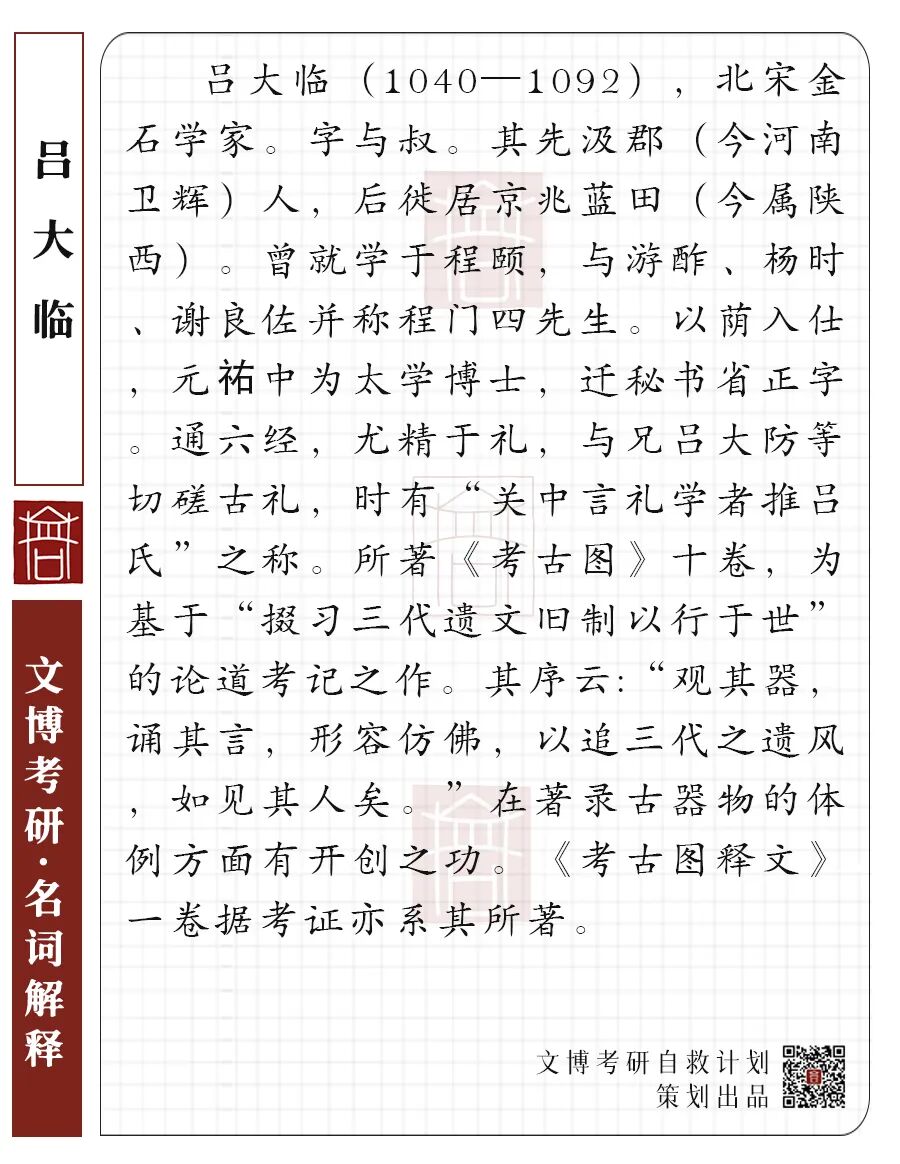 吕大临
文博考研·名词解释
吕大临（1040—1092），北宋金
石学家。字与叔。其先汲郡（今河南
卫辉）人，后徙居京兆蓝田（今属陕
西）。曾就学于程颐，与游酢、杨时
、谢良佐并称程门四先生。以荫入仕
，元祐中为太学博士，迁秘书省正字
。通六经，尤精于礼，与兄吕大防等
切磋古礼，时有“关中言礼学者推吕
氏”之称。所著《考古图》十卷，为
基于“掇习三代遗文旧制以行于世”
的论道考记之作。其序云：“观其器，
诵其言，形容仿佛，以追三代之遗风
，如见其人矣。”在著录古器物的体
例方面有开创之功。《考古图释文》
一卷据考证亦系其所著。
文博考研自救计划
策划出品